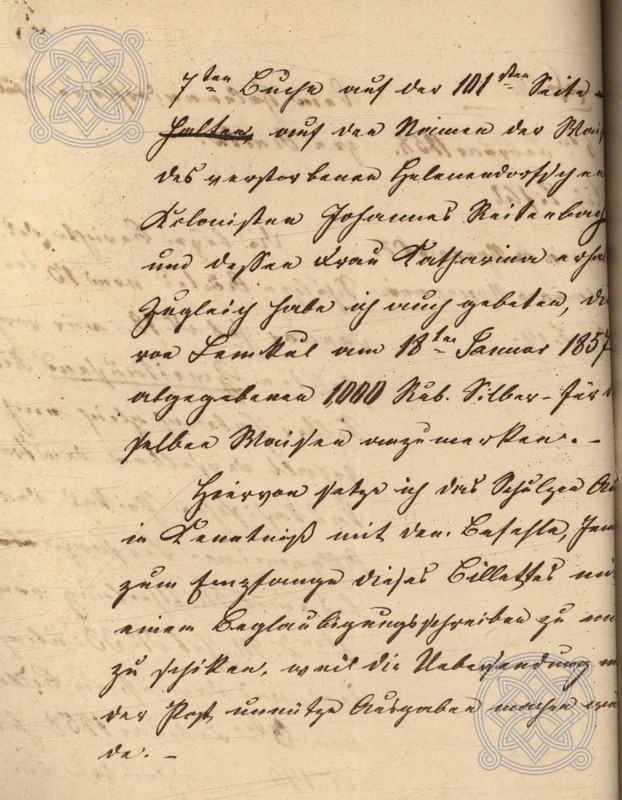 7ten Buche auf der 101sten Seite
halten, auf den Namen der Wais
des verstorbenen Helenendorfschen
Kolonisten Johannes Reitenbach
und dessen Frau Katharina erhal
Zugleich habe ich auch gebeten, di
von Lemkul am 18ten Januar 1857
abgegebenen 1,000 Rub. Silber für
selben Waisen anzumerken. –
Hiervon setze ich das Schulzen A
in Kenntniß mit dem Befehle, Jem
zum Empfange dieses Billettes mit
einem Beglaubigungsschreiben zu
zu schiken, weil die Uebersendung
der Post unnütze Ausgaben machen wür
de. –